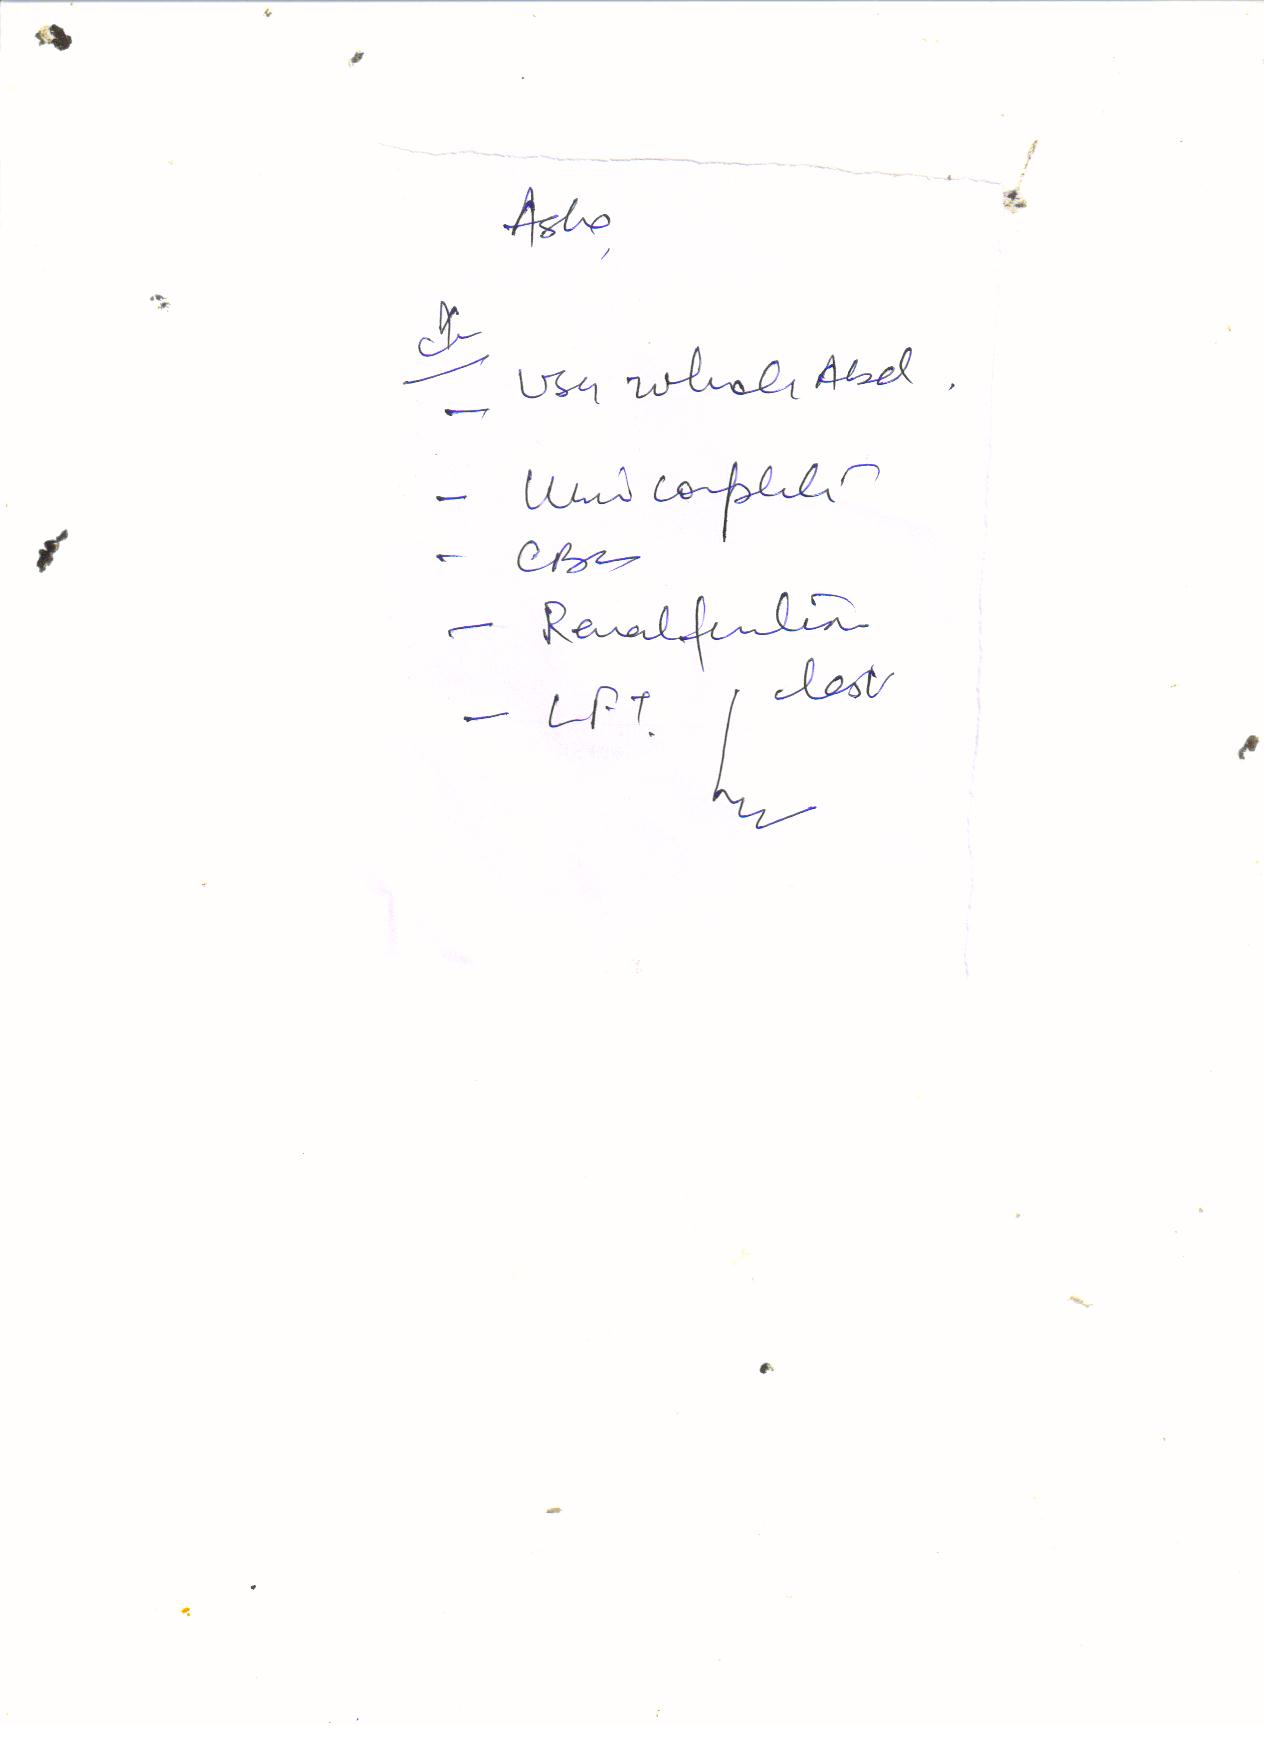 Asha,
- USG whole Abd.
- Urine complete
- CBC
- Renal function
test
- LFT.